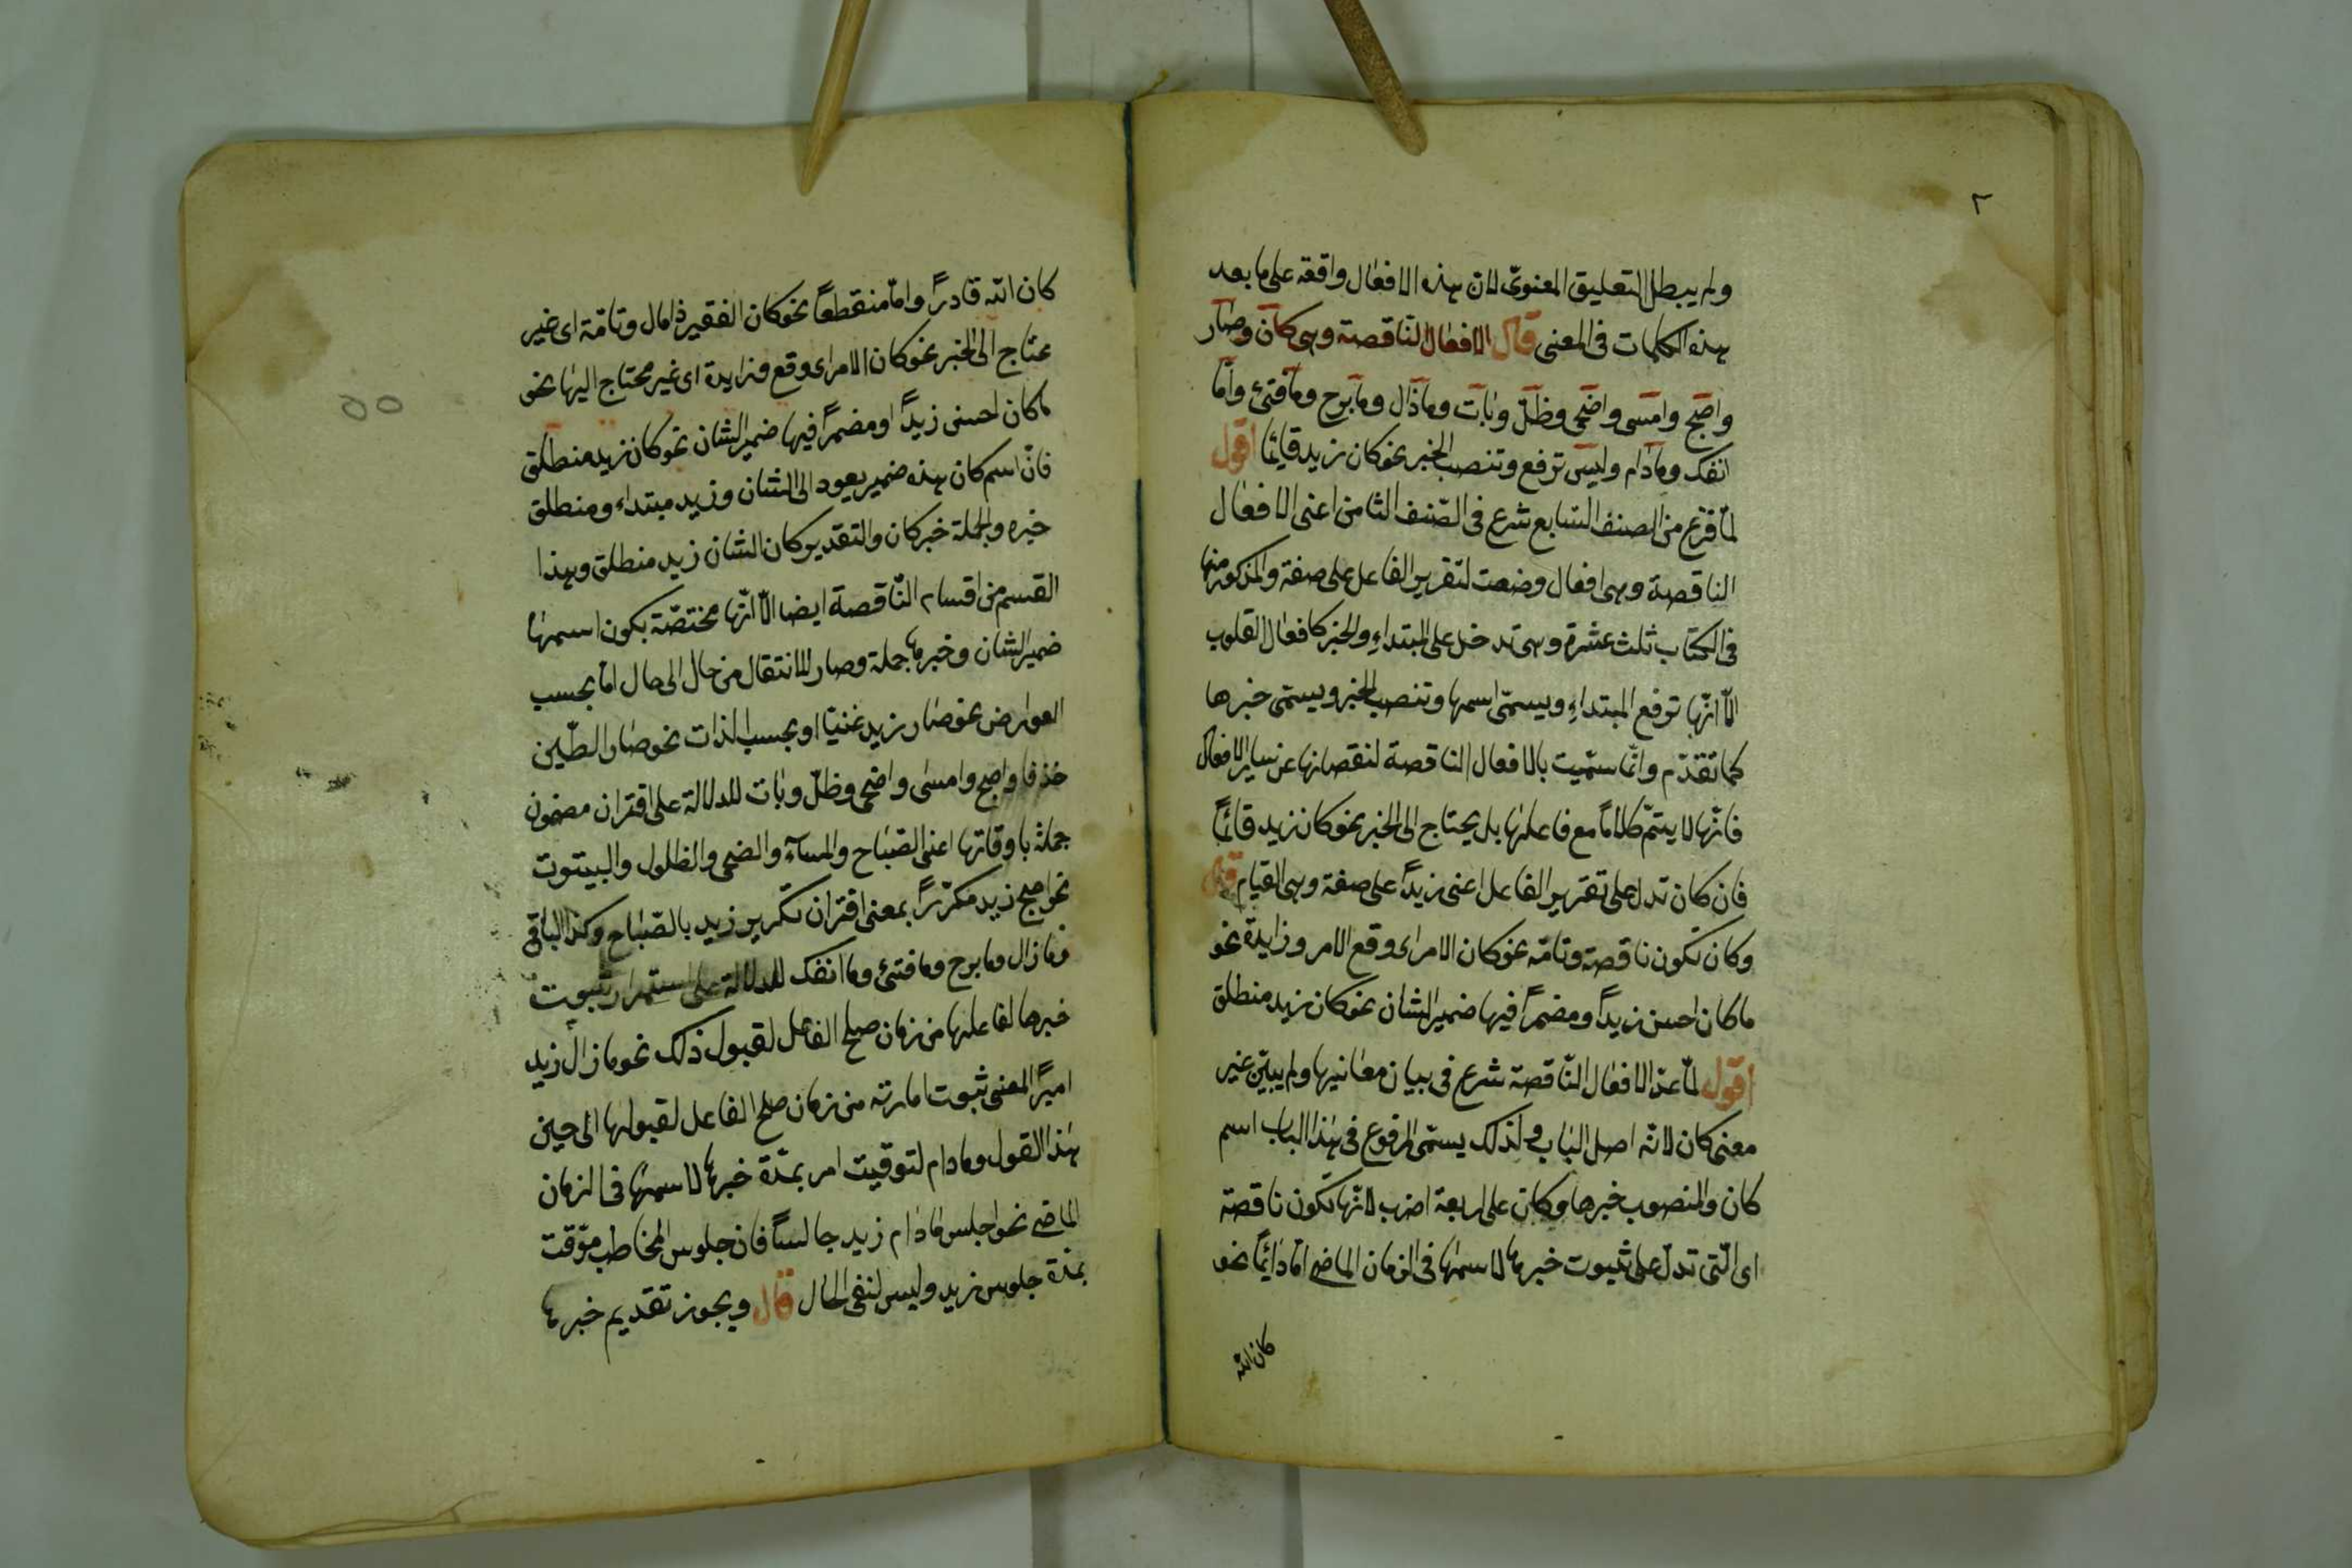 ٢
ولم يبطل التعليق المعنوىّ لان هذه الافعال واقعة على ما بعد
هذه الكلمات فى المعنى قال الافعال الناقصة وهى كان وصار
واصبح وامسى واضحى وظلّ وبات وماذال ومابرح ومافتئ وما
انفك ومادام وليس ترفع وتنصب الخبر نحو كان زيد قايما اقول
لمّا فرغ من الصنف السّابع شرع فى الصّنف الثامن اعنى الافعال
الناقصة وهى افعال وضعت لتقرير الفاعل على صفة والمذكور منها
فى الكتاب ثلث عشرة وهى تدخل على المبتداءِ والخبر كافعال القلوب
الّا انّها ترفع المبتداءِ ويسمّى اسمها وتنصب الخبر ويسمّى خبرها
كما تقدّم وانّما سمّيت بالافعال الناقصة لنقصانها عن ساير الافعال
فانّها لا يتمّ كلاماً مع فاعلها بل يحتاج الى الخبر نحو كان زيد قائماً
فان كان تدل على تقرير الفاعل اعنى زيداً على صفة وهى القيام قال
وكان تكون ناقصة وتامّة نحو كان الامر اى وقع الامر وزايدة نحو
ماكان احسن زيداً ومضمراً فيها ضمير الشان نحو كان زيد منطلق
اقول لمّا عدّ الافعال النّاقصة شرع فى بيان معانيها ولم يبيّن غير
معنى كان لانّه اصل الباب ولذلك يسمّى المرفوع فى هذا الباب اسم
كان والمنصوب خبرها وكان على اربعة اضرب لانّها تكون ناقصة
اى الّتى تدلّ على ثبوت خبرها لاسمها فى الزمان الماضى امّا دائماً نحو
كان الله
كان الله قادراً وامّا منقطعاً نحو كان الفقير ذا مال وتامّة اى غير
محتاج الى الخبر نحو كان الامر اى وقع وزايدة اى غير محتاج اليها نحو
ماكان احسن زيداً او مضمراً فيها ضمير الشان نحو كان زيد منطلق
فانّ اسم كان هذه ضمير يعود الى الشان وزيد مبتداء ومنطلق
خبره والجملة خبر كان والتقدير كان الشان زيد منطلق وهذا
القسم من اقسام النّاقصة ايضا الّا انّها مختصّة بكون اسمها
ضمير الشان وخبرها جملة وصار للانتقال من حال الى حال امّا بحسب
العوارض نحو صار زيد غنيّا او بحسب الذات نحو صار الطّين
خذفا واصبح وامسى واضحى وظلّ وبات للدلالة على اقتران مضمون
جملة باوقاتها اعنى الصّباح والمسآء والضحى والظلول والبيتوت
نحو اصبح زيد مكرّراً بمعنى اقتران تكرير زيد بالصّباح وكذا الباقى
ومازال ومابرح ومافتئ وماانفك للدلالة على استمرار ثبوت
خبرها لفاعلها من زمان صلح الفاعل لقبول ذلك نحو مازال زيد
اميراً المعنى ثبوت امارته من زمان صلح الفاعل لقبولها الى حين
هذا القول ومادام لتوقيت امر بمدّة خبرها لاسمها فى الزمان
الماضى نحو اجلس مادام زيد جالساً فان جلوس المخاطب موقّت
بمدة جلوس زيد وليس لنفى الحال قال ويجوز تقديم خبرها